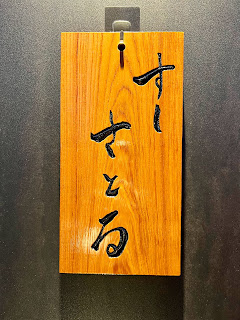 すし
さとる